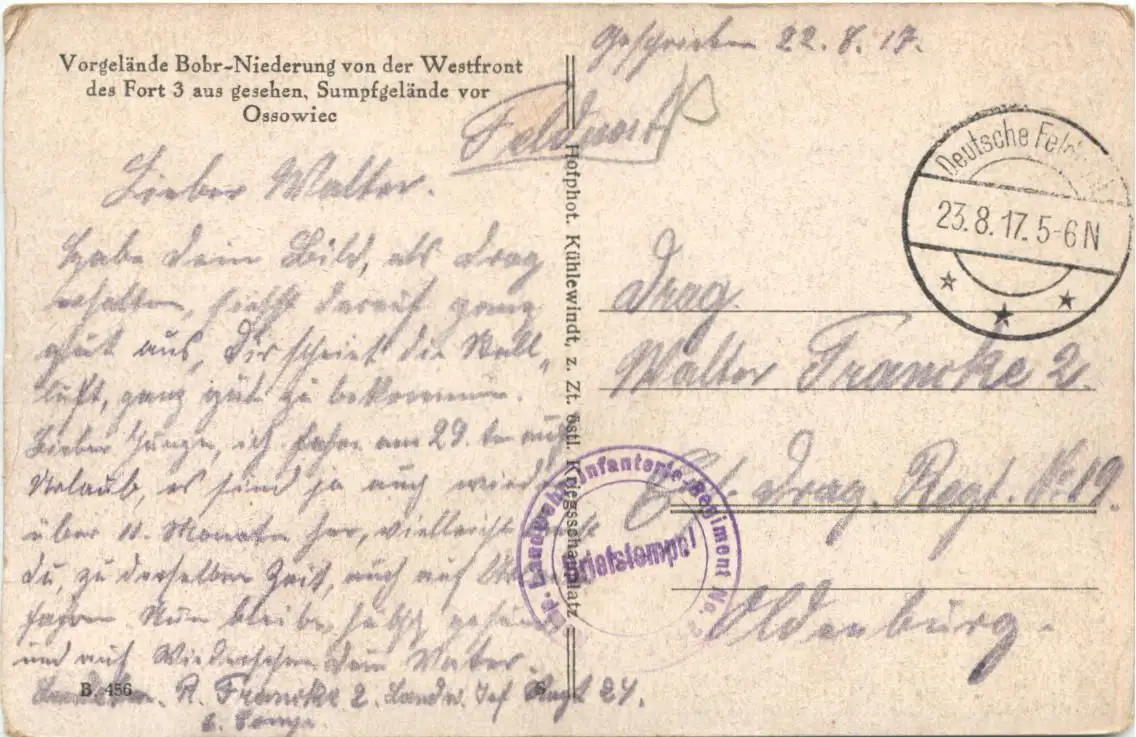 Vorgelände Bobr-Niederung von der Westfront
des Fort 3 aus gesehen, Sumpfgelände vor
Ossowiec
Geschrieben 22.8.17.
Feldpost
Deutsche Feldpost
23.8.17.5-6N
Lieber Walter.
Habe dein Bild, als Drag
erhalten, siehst darauf ganz
gut aus, Dir scheint die Stall-
luft, ganz gut zu bekommen.
Lieber Junge, ich fahre am 29. auf
Urlaub, es sind ja auch wieder
über 11. Monate her, vielleicht
du, zu derselben Zeit, auch auf
fahren Nun bleibe hübsch gesund
und auf Wiedersehen dein Vater.
R. Francke 2. Landw. Inf Regt 24
Hofphot. Kühlewindt, z. Zt. östl. Kriegsschauplatz
B. 456
Drag.
Walter Francke 2.
Drag. Regt. No 19.
Oldenburg.
Landwehr-Infanterie-Regiment No.
Briefstempel